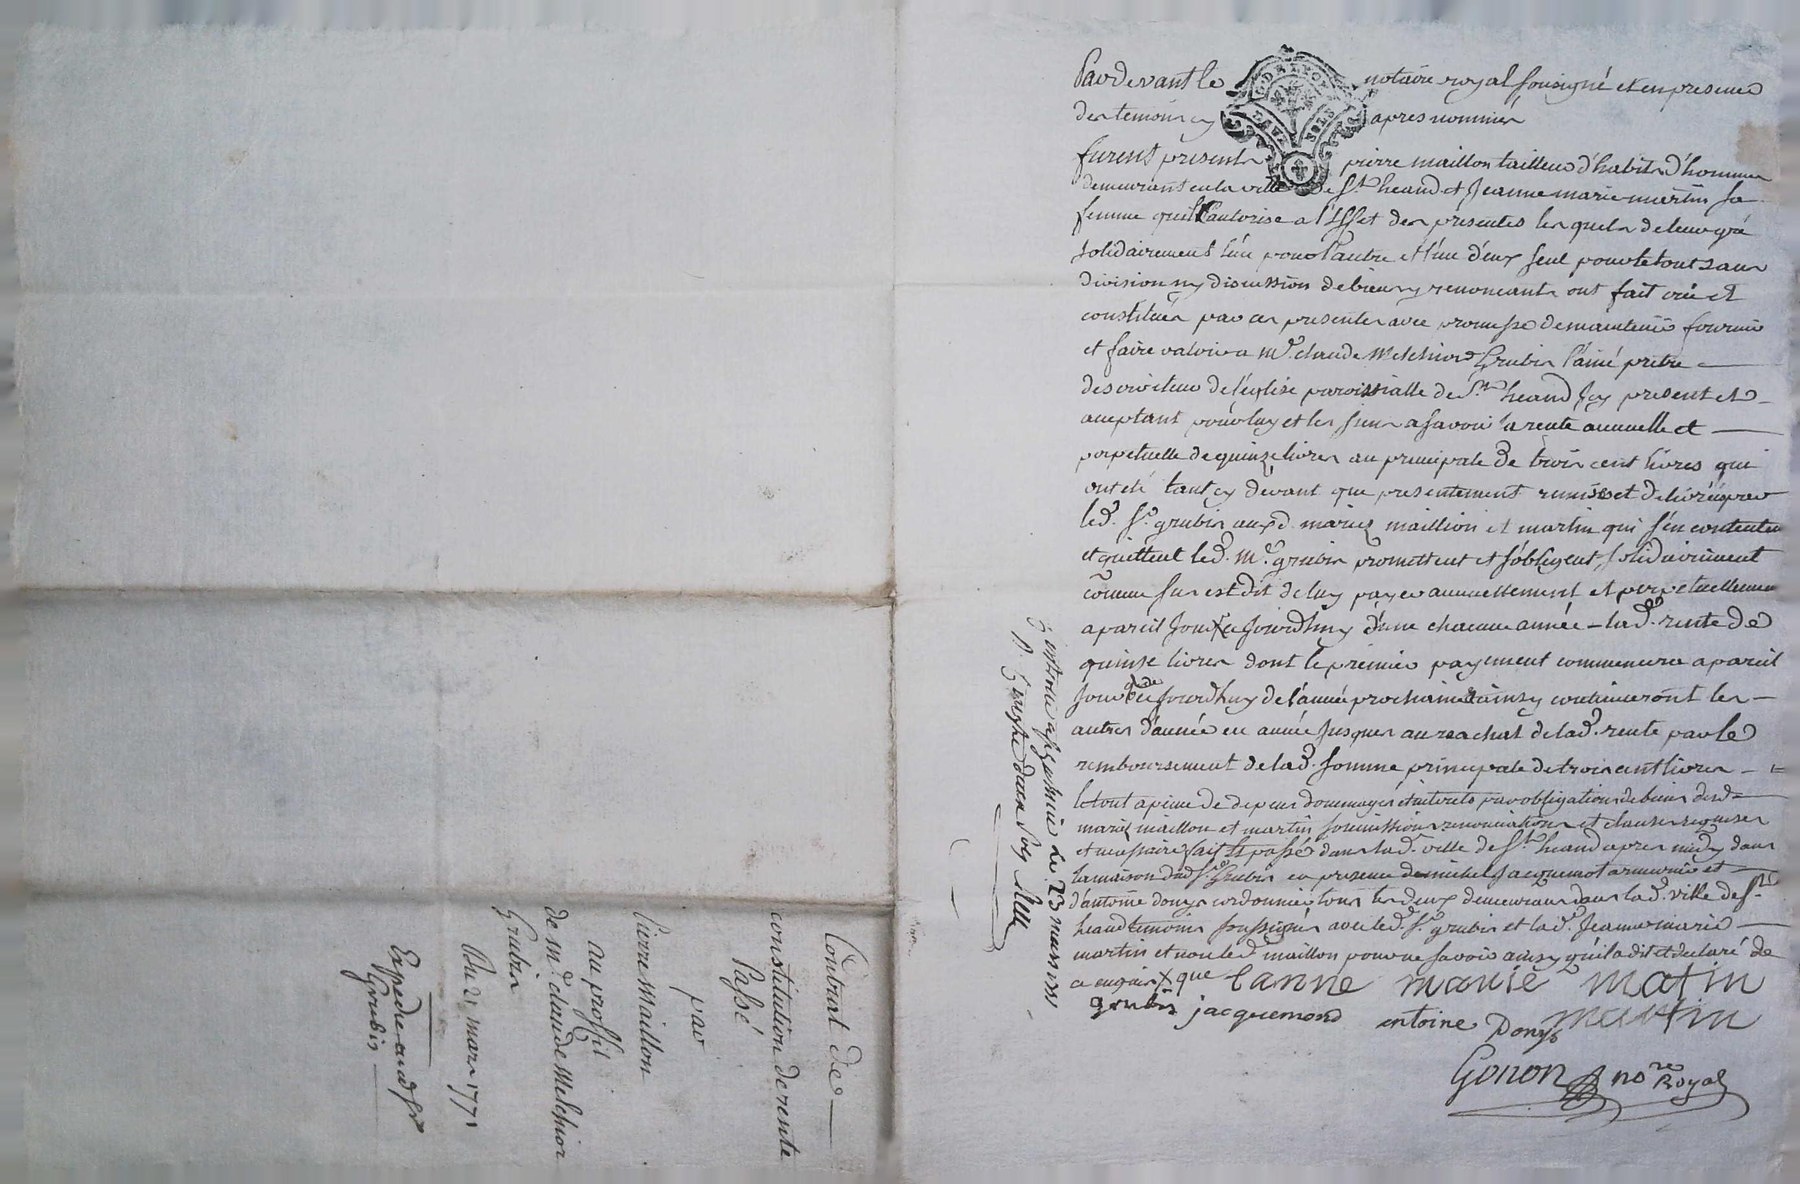 Pardevant le notaire royal sousigné et en presence
des temoins cy apres nommés
G. DE LYON
furent presents pierre maillon tailleur d'habits d'hommes
demeurant en la ville de St. heand et Jeanne marie martin sa
femme quil autorise a l'effet des presentes les quels de leur gré
solidairement l'un pour l'autre et l'un d'eux seul pour le tout sans
division ny discussion de biens y renoncants ont fait créé et
constitués par ces presentes avec promesse de maintenir fournir
et faire valoir a Mr. claude Melchior Grubis l'ainé prêtre
desserviteur de l'église paroissialle de St. heand Icy present et
acceptant pour luy et les siens a savoir la rente annuelle et
perpetuelle de quinze livres au principale de trois cent livres qui
ont eté tant cy devant que presentement remis et delivré par
led. Sr. grubis auxd. mariez maillion et martin qui s'en contentent
et quittent led. Mr. grubis promettent et s'obligent solidairement
comme sus est dit de luy payer annuellement et perpetuellement
a pareil Jour ce Jourdhuy d'une chacune année lad. rente de
quinse livres dont le premier payement commencera a pareil
Jour que de ce Jourdhuy de l'année prochaine ainsy continueront les
autres d'année en année Jusques au rachat de lad. rente par le
remboursement de lad. somme principale de trois cent livres
le tout a peine de depens dommages interets par obligation de biens desd.
mariez maillon et martin soumissions renonciations et clauses requises
et necessaire fait et passé dans lad. ville de St. heand apres midy dans
la maison dud. Sr. Grubis en presence de michel Jacquemot armurier et
d'antoine donys cordonnier tous les deux demeurans dans lad. ville de St.
heand temoins soussignés avec led. Sr. grubis et lad. Jeanne marie
martin et non led. maillon pour ne savoir ainsy qu'il a dit et declaré de
ce enquis que Janne marie matin
grubis jacquemond antoine Donys martin
Gonon nore Royal
le 23 mars 1771
Contrat de
constitution de rente
Passé
par
Pierre Maillon
au proffit
de Mr. claude Melchior
Grubis
Du 21 mars 1771
Expedié aud. Sr
Grubis